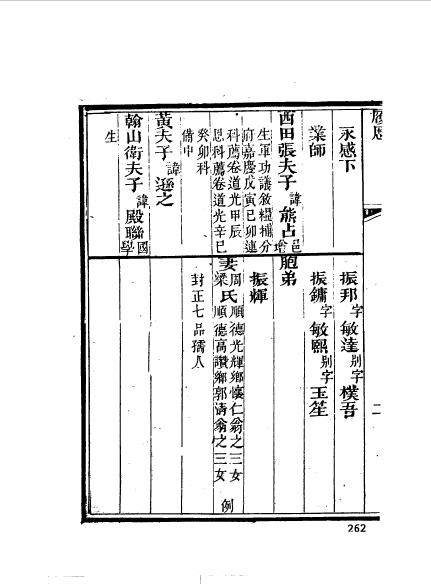 永感下
業師
西田張夫子諱熊占邑增
生軍功議敘縂補分
府嘉慶戊寅己卯連
科薦卷道光甲辰
恩科薦卷道光辛巳
癸卯科
備中
黃夫子諱遜之
翰山衛夫子諱殿聯國學
生
振邦字敏達别字樸吾
振鏞字敏熙别字玉笙
胞弟
振輝
妻
周
氏
順德光輝鄉懷仁翁之三女
梁
順德高讚鄉郭濤翁之三女
例
封正七品孺人
二
262